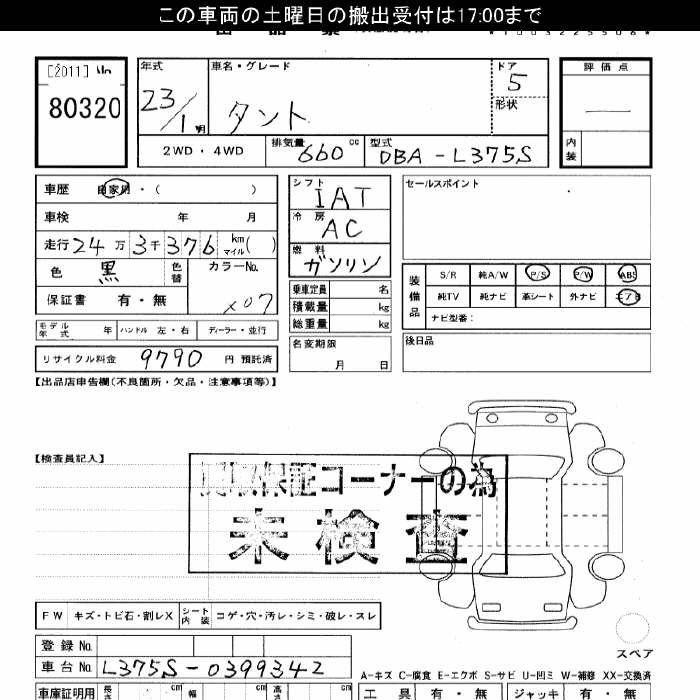 この車両の土曜日の搬出受付は17:00まで
[2011] No
80320
年式 車名・グレード ドア 評価点
23/1 タント 5
形状
2WD・4WD 排気量 660 cc 型式 DBA-L375S 内装
車歴 自家用・( ) シフト IAT セールスポイント
車検 年 月 冷房 AC
走行 24万3千376 km マイル ( ) 燃料 ガソリン
色 黒 色替 カラーNo. X07
保証書 有・無
乗車定員 名
積載量 kg
総重量 kg
装備品 S/R 純A/W P/S P/W ABS
純TV 純ナビ 革シート 外ナビ エアB
ナビ型番:
モデル年式 年 ハンドル 左・右 ディーラー・並行
名変期限 月 日
後日品
リサイクル料金 9790 円 預託済
【出品店申告欄(不良箇所・欠品・注意事項等)】
【検査員記入】
保証コーナーの為
未検査
FW キズ・トビ石・割レX シート内装 コゲ・穴・汚レ・シミ・破レ・スレ
登録No.
車台No. L375S-0399342
スペア
A-キズ C-腐食 E-エクボ S-サビ U-凹ミ W-補修 XX-交換済
車庫証明用 長さ cm 幅 cm 高さ cm 工具 有・無 ジャッキ 有・無